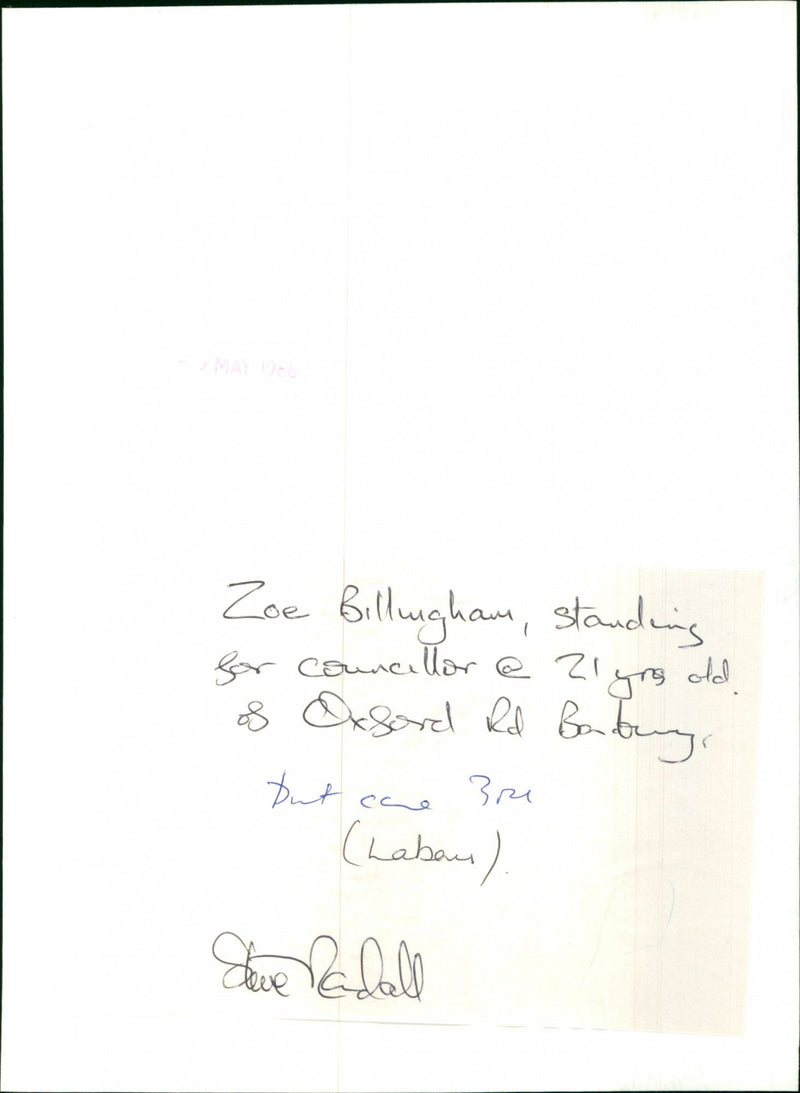 MAY 1986
Zoe Billingham, standing
for councillor @ 21 yrs old.
of Oxford Rd Banbury.
But came 3rd
(Labour).
Steve Randall